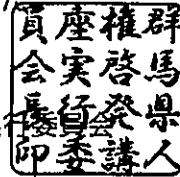 群馬県人
権啓発講
座実行委
員会長印